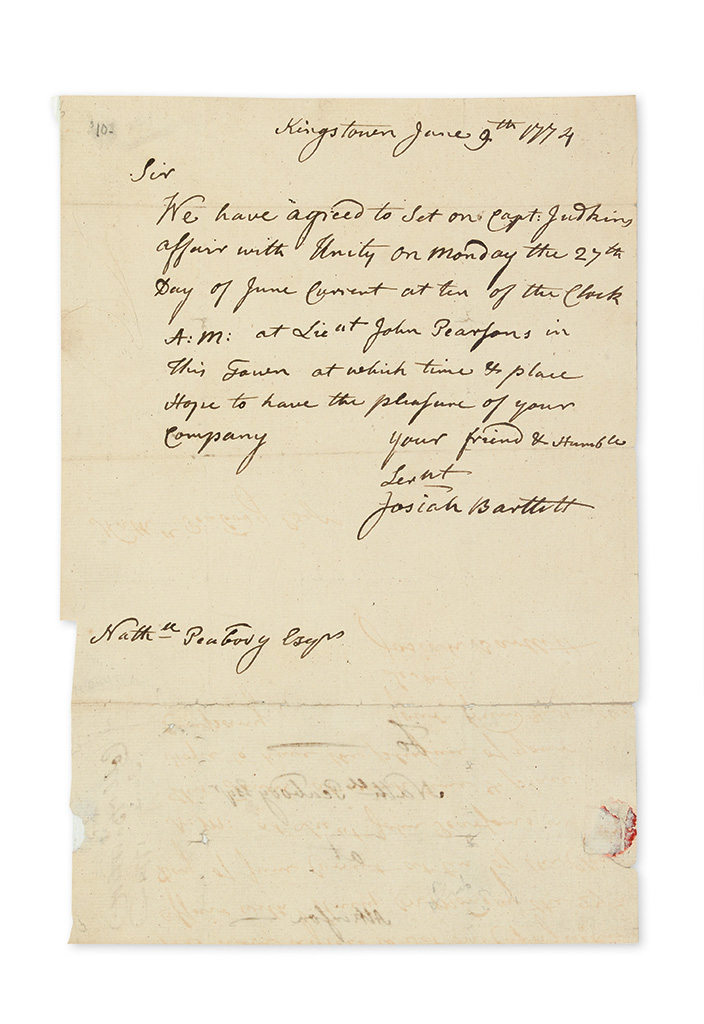 Kingstown June 9th 1774
Sir
We have agreed to Set on Capt: Judkins
affair with Unity on Monday the 27th
Day of June Current at ten of the Clock
A: M: at Lieut John Pearsons in
this Town at which time & place
Hope to have the pleasure of your
Company
your friend & Humble
Servt
Josiah Bartlett
Nathll Peabody Esqr
To
Nathll Peabody Esqr
Atkinson